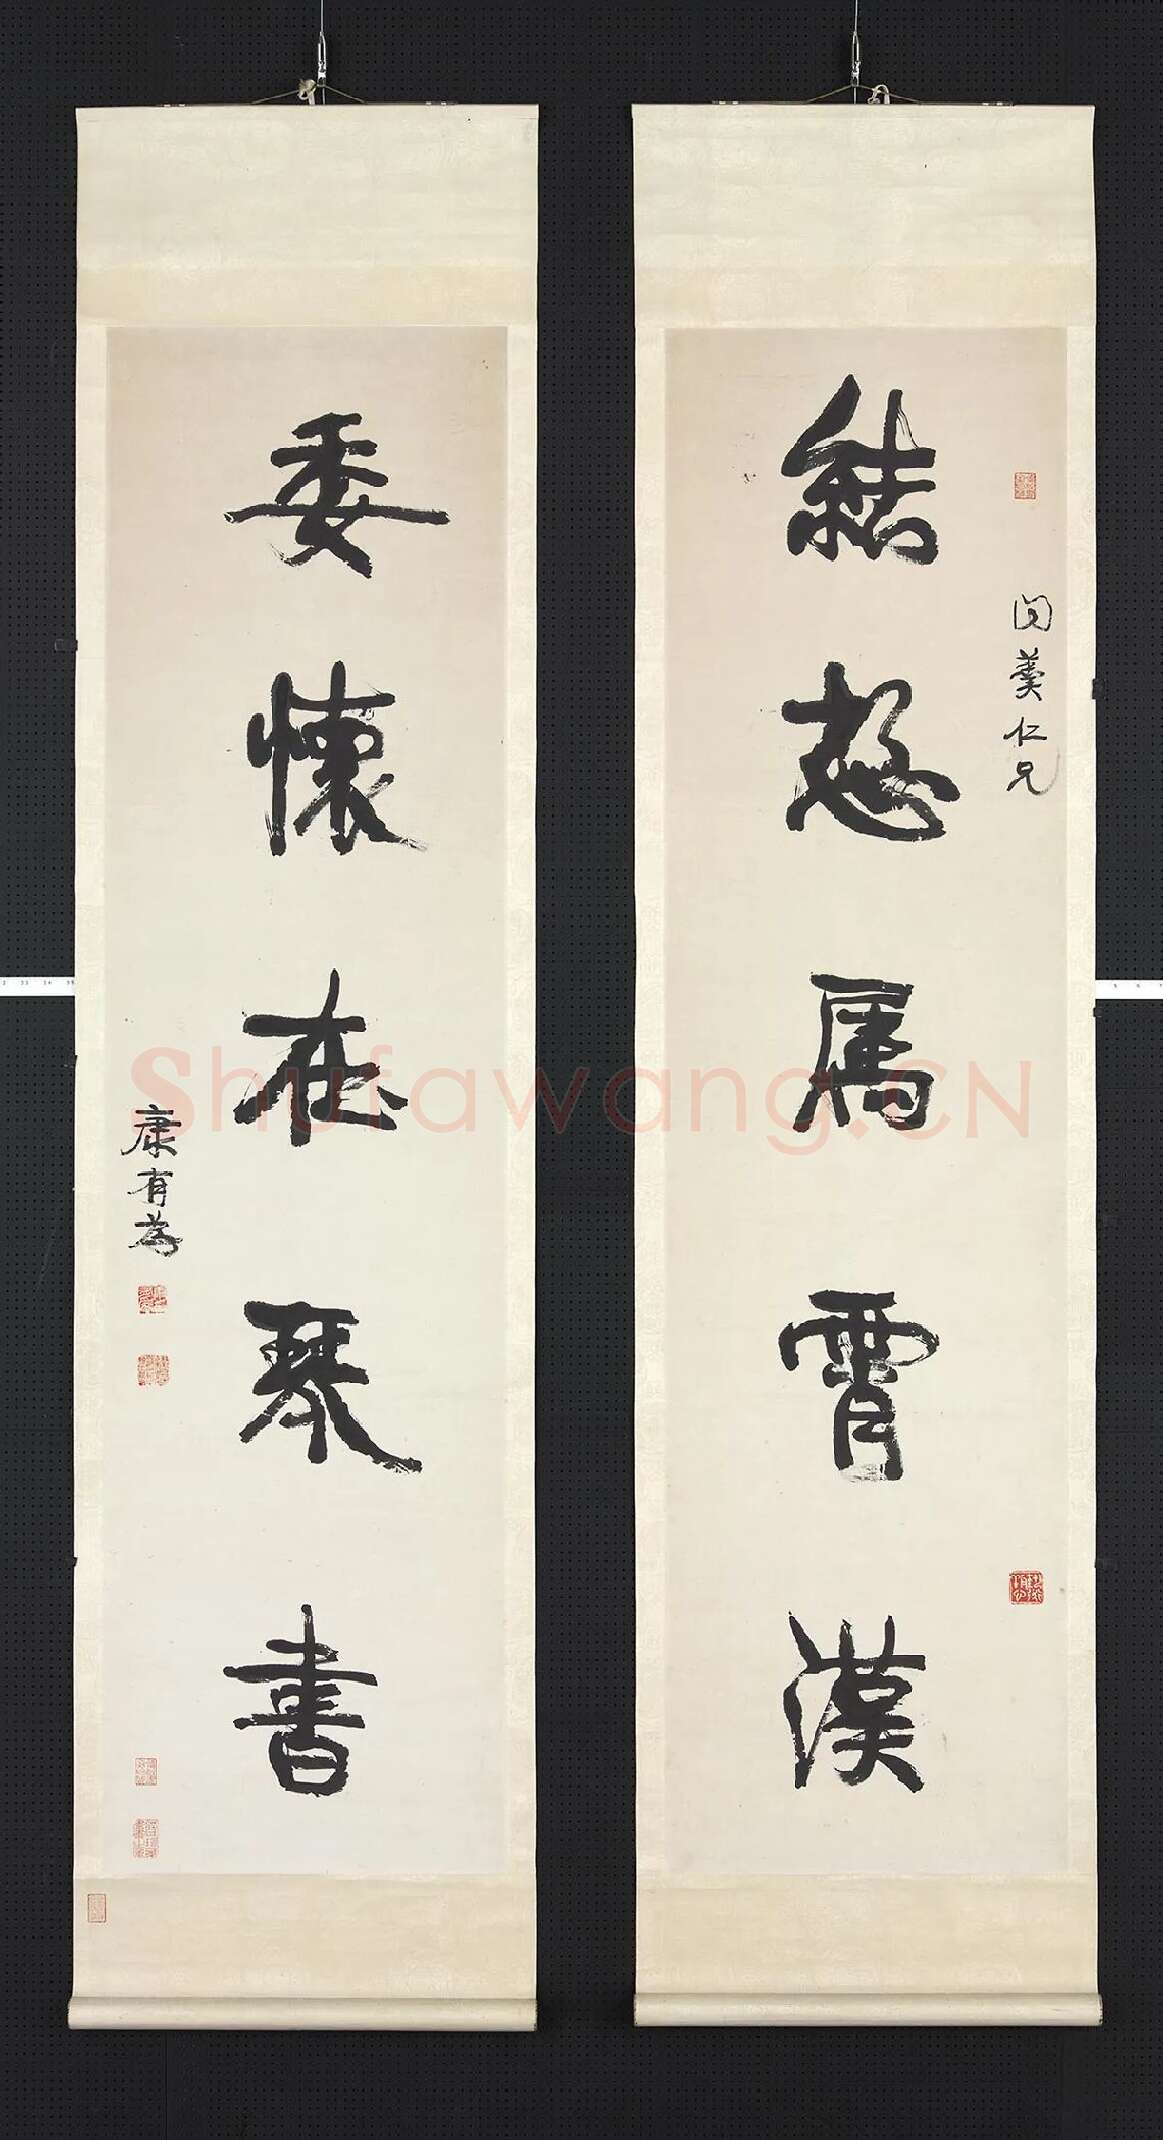 結想屬霄漢
羹仁兄
委懷在琴書
康有為
Shufawang.CN